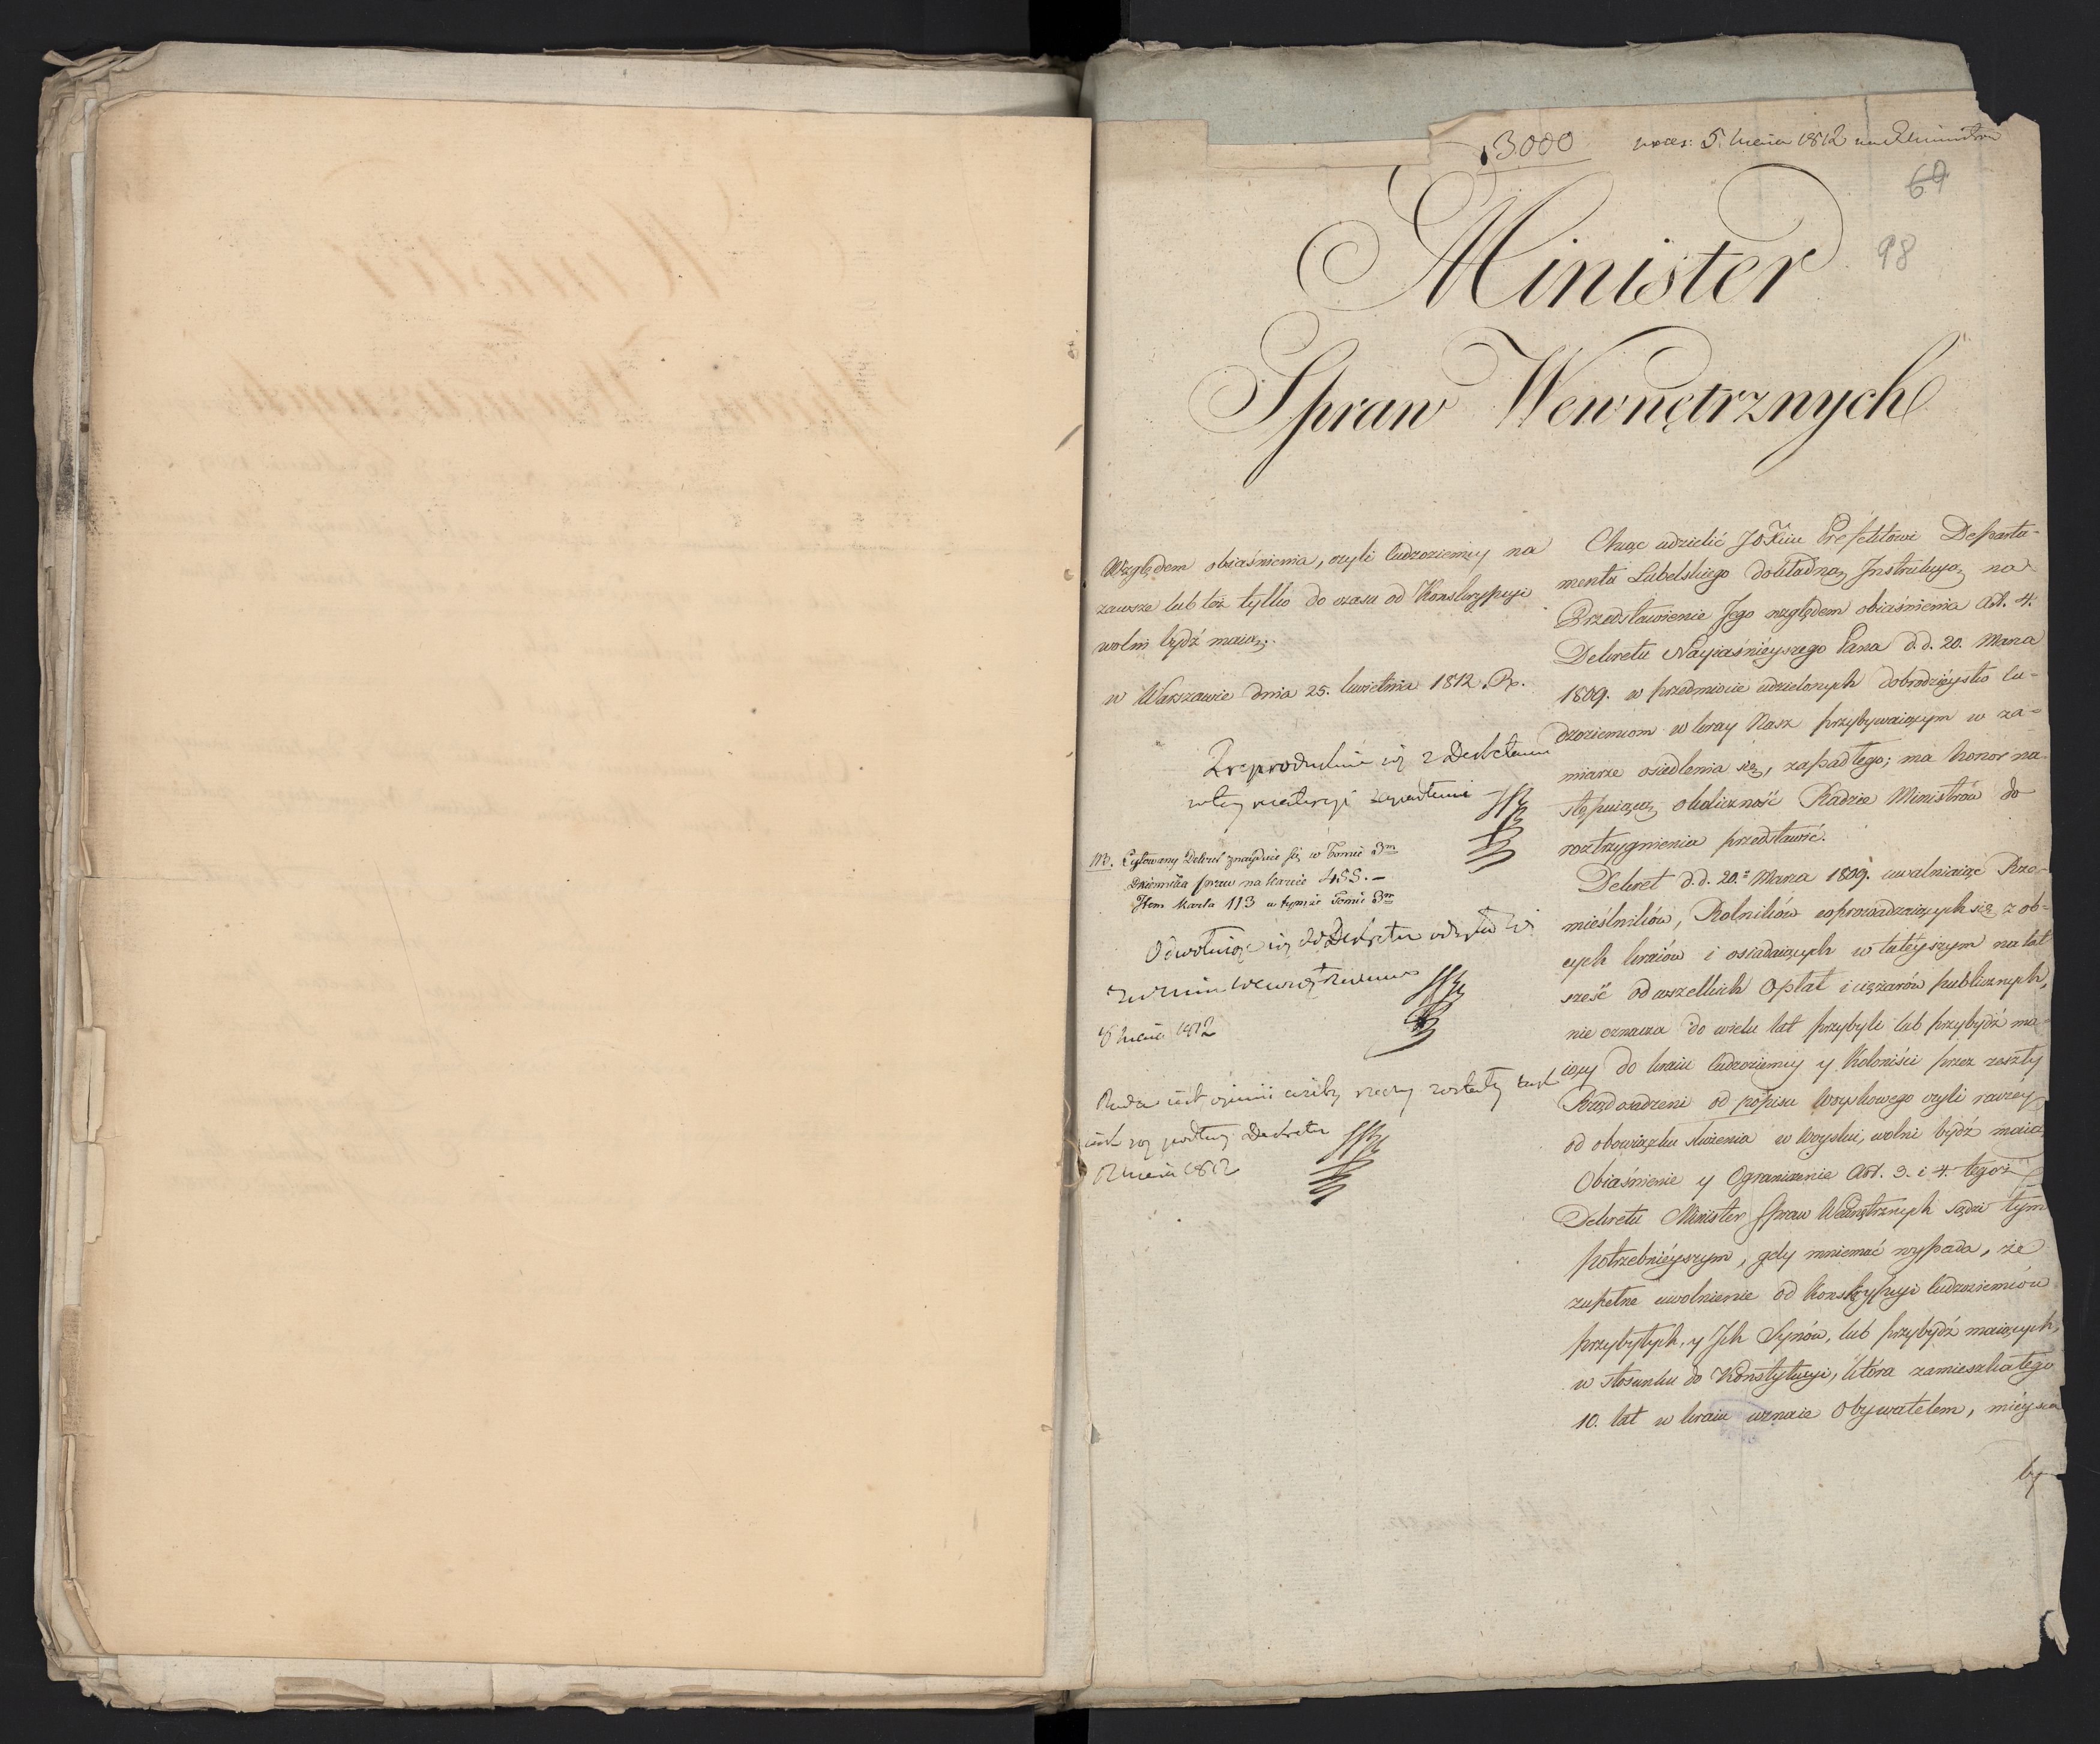 3000
5. Maia 1812
69
98
Minister
Spraw Wewnętrznych
Względem obiaśnienia, czyli Cudzoziemcy na
zawsze lub też tylko do czasu od Konskrypcyi
wolni bydź maią.
w Warszawie dnia 25. kwietnia 1812. R.
Zreprodukuie się z Dekretami
w tey materyi zapadłemi
NB. Cytowany Dekret znayduie się w Tomie 3m
Dziennika praw na karcie 455. —
Item karta 113 w tymże Tomie 3m
Odwołuiąc się do Dekretu
5 Maia 1812
Rada iest opinii
się podług Dekretu
12 Maia 1812
Chcąc udzielić JOXciu Prefektowi Departa-
mentu Lubelskiego dokładną Instrukcyą na
Przedstawienie Jego względem obiaśnienia Art. 4.
Dekretu Nayiaśnieyszego Pana d. d. 20. Marca
1809. w przedmiocie udzielonych dobrodzieystw cu-
dzoziemcom w kray Nasz przybywaiącym w za-
miarze osiedlenia się, zapadłego; ma honor na-
stępuiącą okoliczność Radzie Ministrów do
roztrzygnienia przedstawić.
Dekret d. d. 20. Marca 1809. uwalniaiąc Rze-
mieślników, Rolników wprowadzaiących się z ob-
cych kraiów i osiadaiących w tuteyszym na lat
sześć od wszelkich Opłat i ciężarów publicznych,
nie oznacza do wielu lat przybyli lub przybydź ma-
iący do kraiu Cudzoziemcy y Koloniści przez zeszły
Rząd osadzeni od popisu woyskowego czyli raczey
od obowiązku służenia w woysku, wolni bydź maią.
Obiaśnienie y Ograniczenie Art. 3. i 4. tegoż
Dekretu Minister Spraw Wewnętrznych sądzi tym
potrzebnieyszym, gdy mniemać wypada, że
zupełne uwolnienie od Konskrypcyi Cudzoziemców
przybyłych, y Ich Synów, lub przybydź maiących,
w stosunku do Konstytucyi, która zamieszkałego
10. lat w kraiu uznaie Obywatelem, mieysca
by